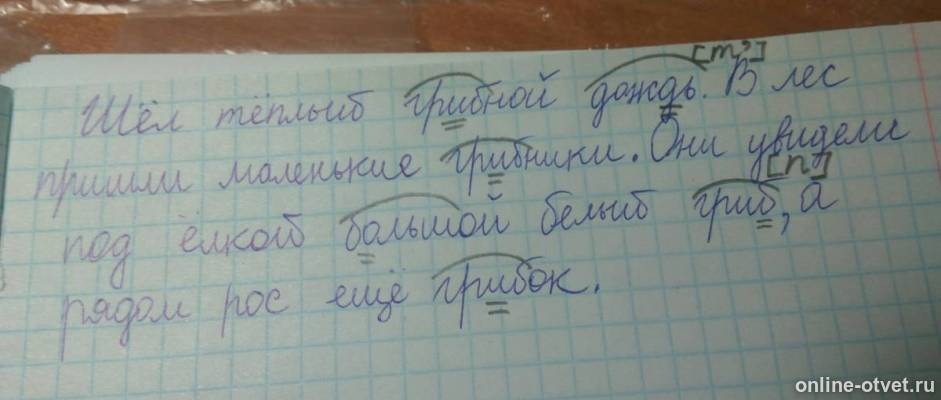 [т']
Шёл тёплый грибной дождь. В лес
пришли маленькие грибники. Они увидели
[п]
под ёлкой большой белый гриб, а
рядом рос ещё грибок.
online-otvet.ru